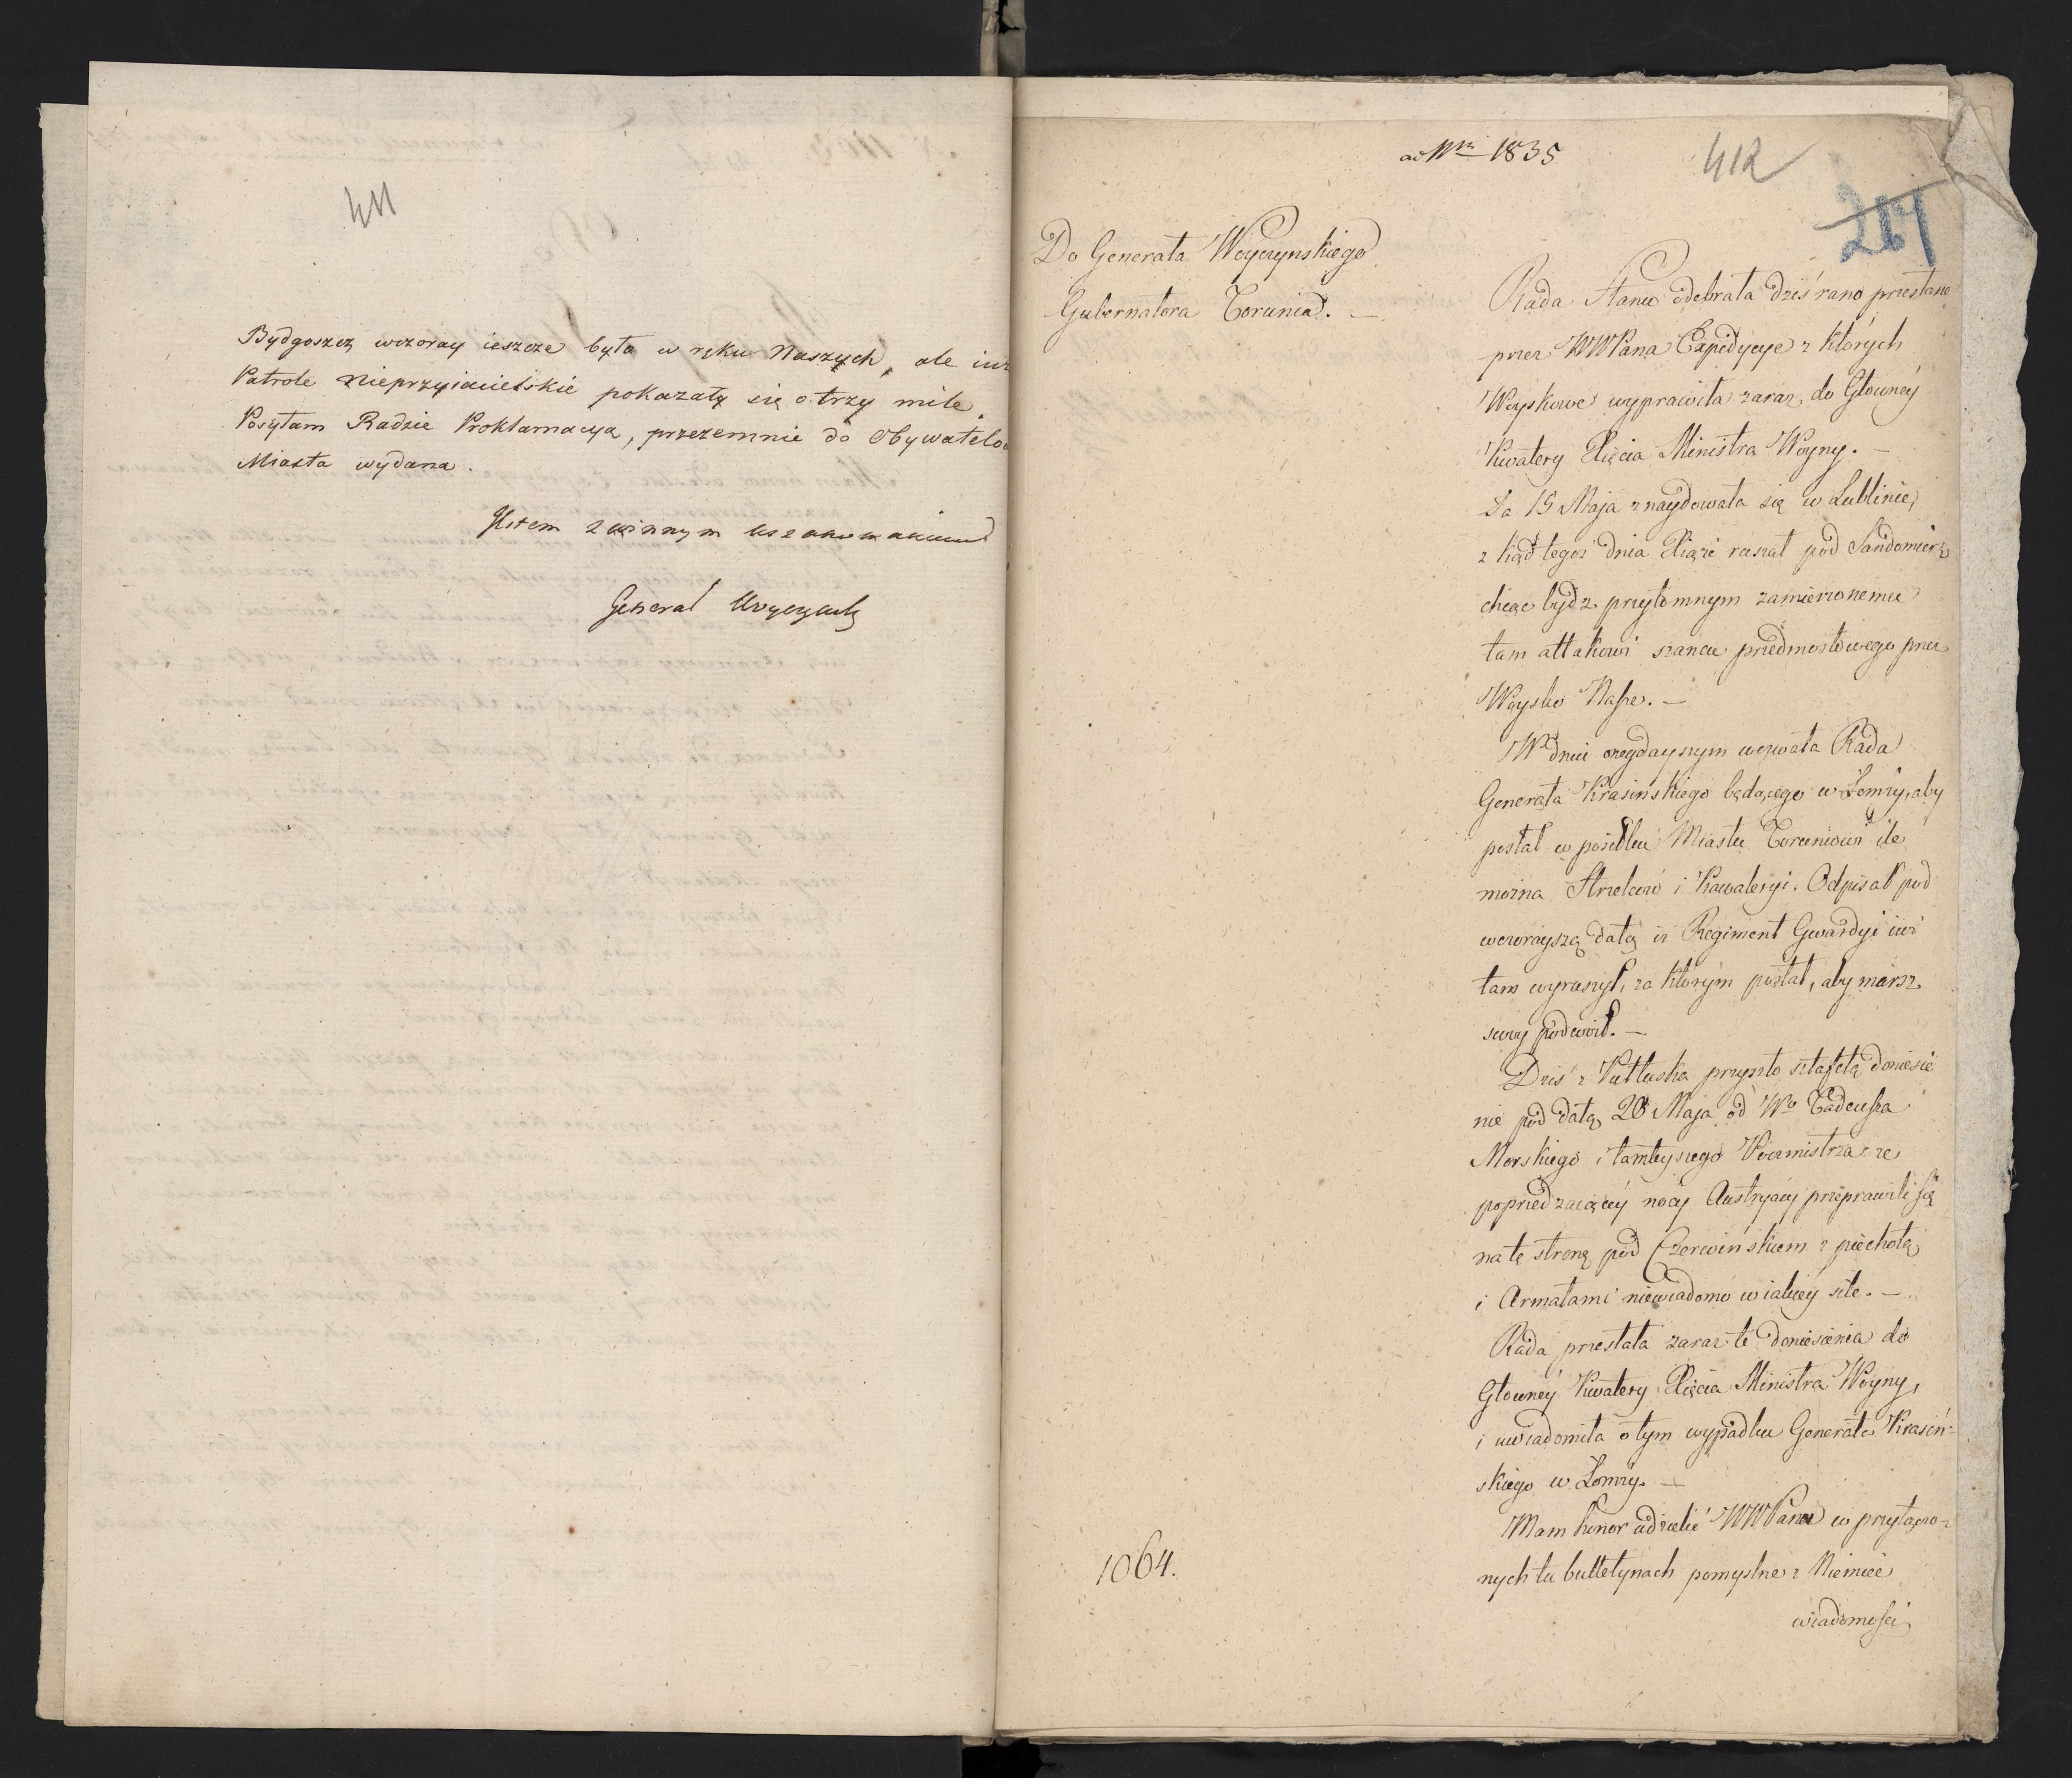 411
Bydgoszcz wczoray ieszcze była w ręku Naszych, ale iuż
Patrole Nieprzyiacielskie pokazały się o trzy mile.
Posyłam Radzie Proklamacyą, przezemnie do Obywatelow
Miasta wydana.
Jestem z winnym uszanowaniem
Generał Woyczynski
ad Nrm 1835
412
264
Do Generała Woyczynskiego
Gubernatora Torunia. —
Rada Stanu odebrała dziś rano przesłane
przez WWPana Expedycye z których
Woyskowe wyprawiła zaraz do Głowney
Kwatery Xięcia Ministra Woyny. —
Ta 15 Maja znaydowała się w Lublinie,
z kąd tegoż dnia Xiąże ruszał pod Sandomierz
chcąc bydz przytomnym zamierzonemu
tam attakowi szancu przedmostowego przez
Woysko Nasze. —
W dniu onegdayszym wezwała Rada
Generała Krasinskiego będącego w Łomży, aby
posłał w posiłku Miastu Toruniowi ile
można Strzelców i Kawaleryi. Odpisał pod
wczorayszą datą iż Regiment Gwardyi iuż
tam wyruszył, za którym posłał, aby marsz
swoy podwoił. —
Dziś z Pułtuska przyszło sztafetą doniesie
nie pod datą 20 Maja od Wo Tadeusza
Morskiego i tamteyszego Poczmistrza że
poprzedzaiącey nocy Austryacy przeprawili się
na tę stronę pod Czerwińskiem z piechotą
i Armatami niewiadomo w iakiey sile. —
Rada przesłała zaraz te doniesienia do
Głowney Kwatery Xięcia Ministra Woyny,
i uwiadomiła o tym wypadku Generała Krasiń-
skiego w Łomży. —
Mam honor udzielić WWPanu w przyłączo-
nych tu bulletynach pomyslne z Niemiec
wiadomości
1064.